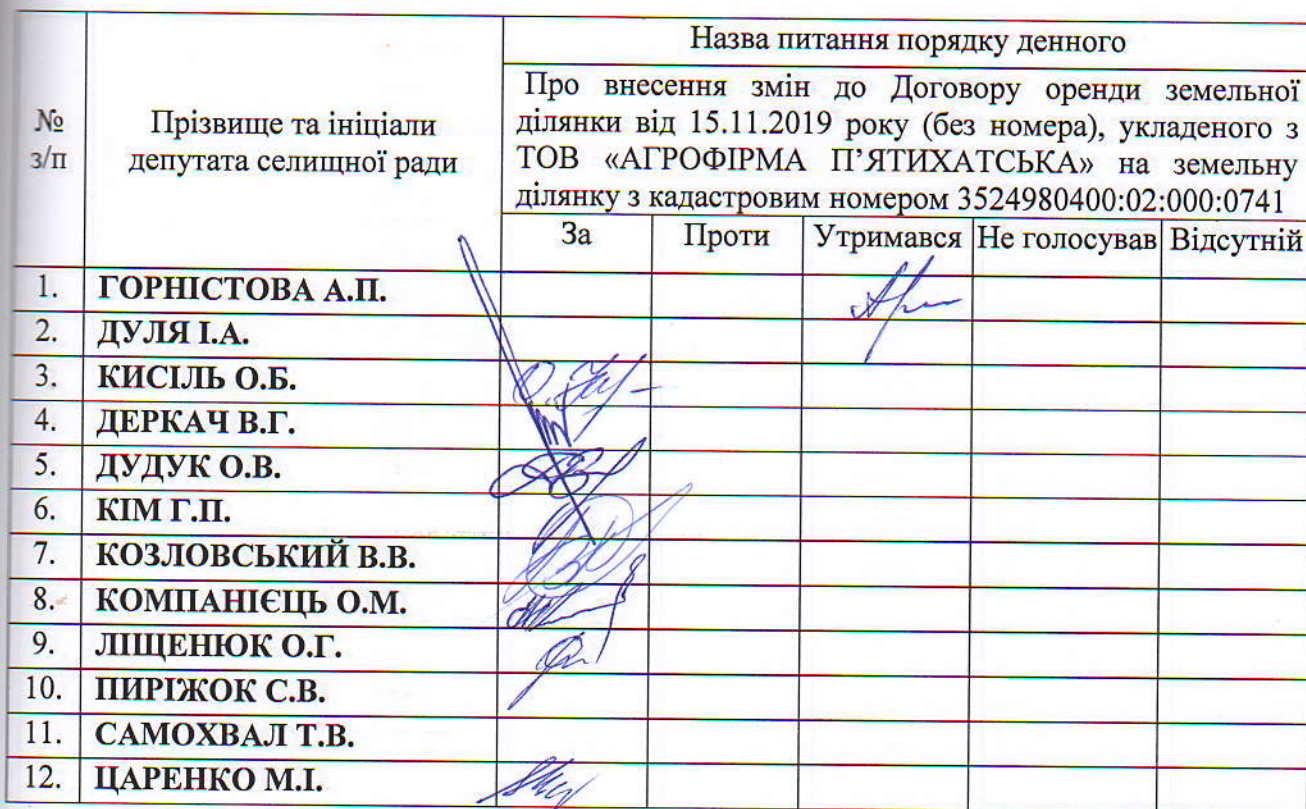 № з/п
Прізвище та ініціали
депутата селищної ради
Назва питання порядку денного
Про внесення змін до Договору оренди земельної
ділянки від 15.11.2019 року (без номера), укладеного з
ТОВ «АГРОФІРМА П’ЯТИХАТСЬКА» на земельну
ділянку з кадастровим номером 3524980400:02:000:0741
За Проти Утримався Не голосував Відсутній
1. ГОРНІСТОВА А.П.
2. ДУЛЯ І.А.
3. КИСІЛЬ О.Б.
4. ДЕРКАЧ В.Г.
5. ДУДУК О.В.
6. КІМ Г.П.
7. КОЗЛОВСЬКИЙ В.В.
8. КОМПАНІЄЦЬ О.М.
9. ЛІЩЕНЮК О.Г.
10. ПИРІЖОК С.В.
11. САМОХВАЛ Т.В.
12. ЦАРЕНКО М.І.